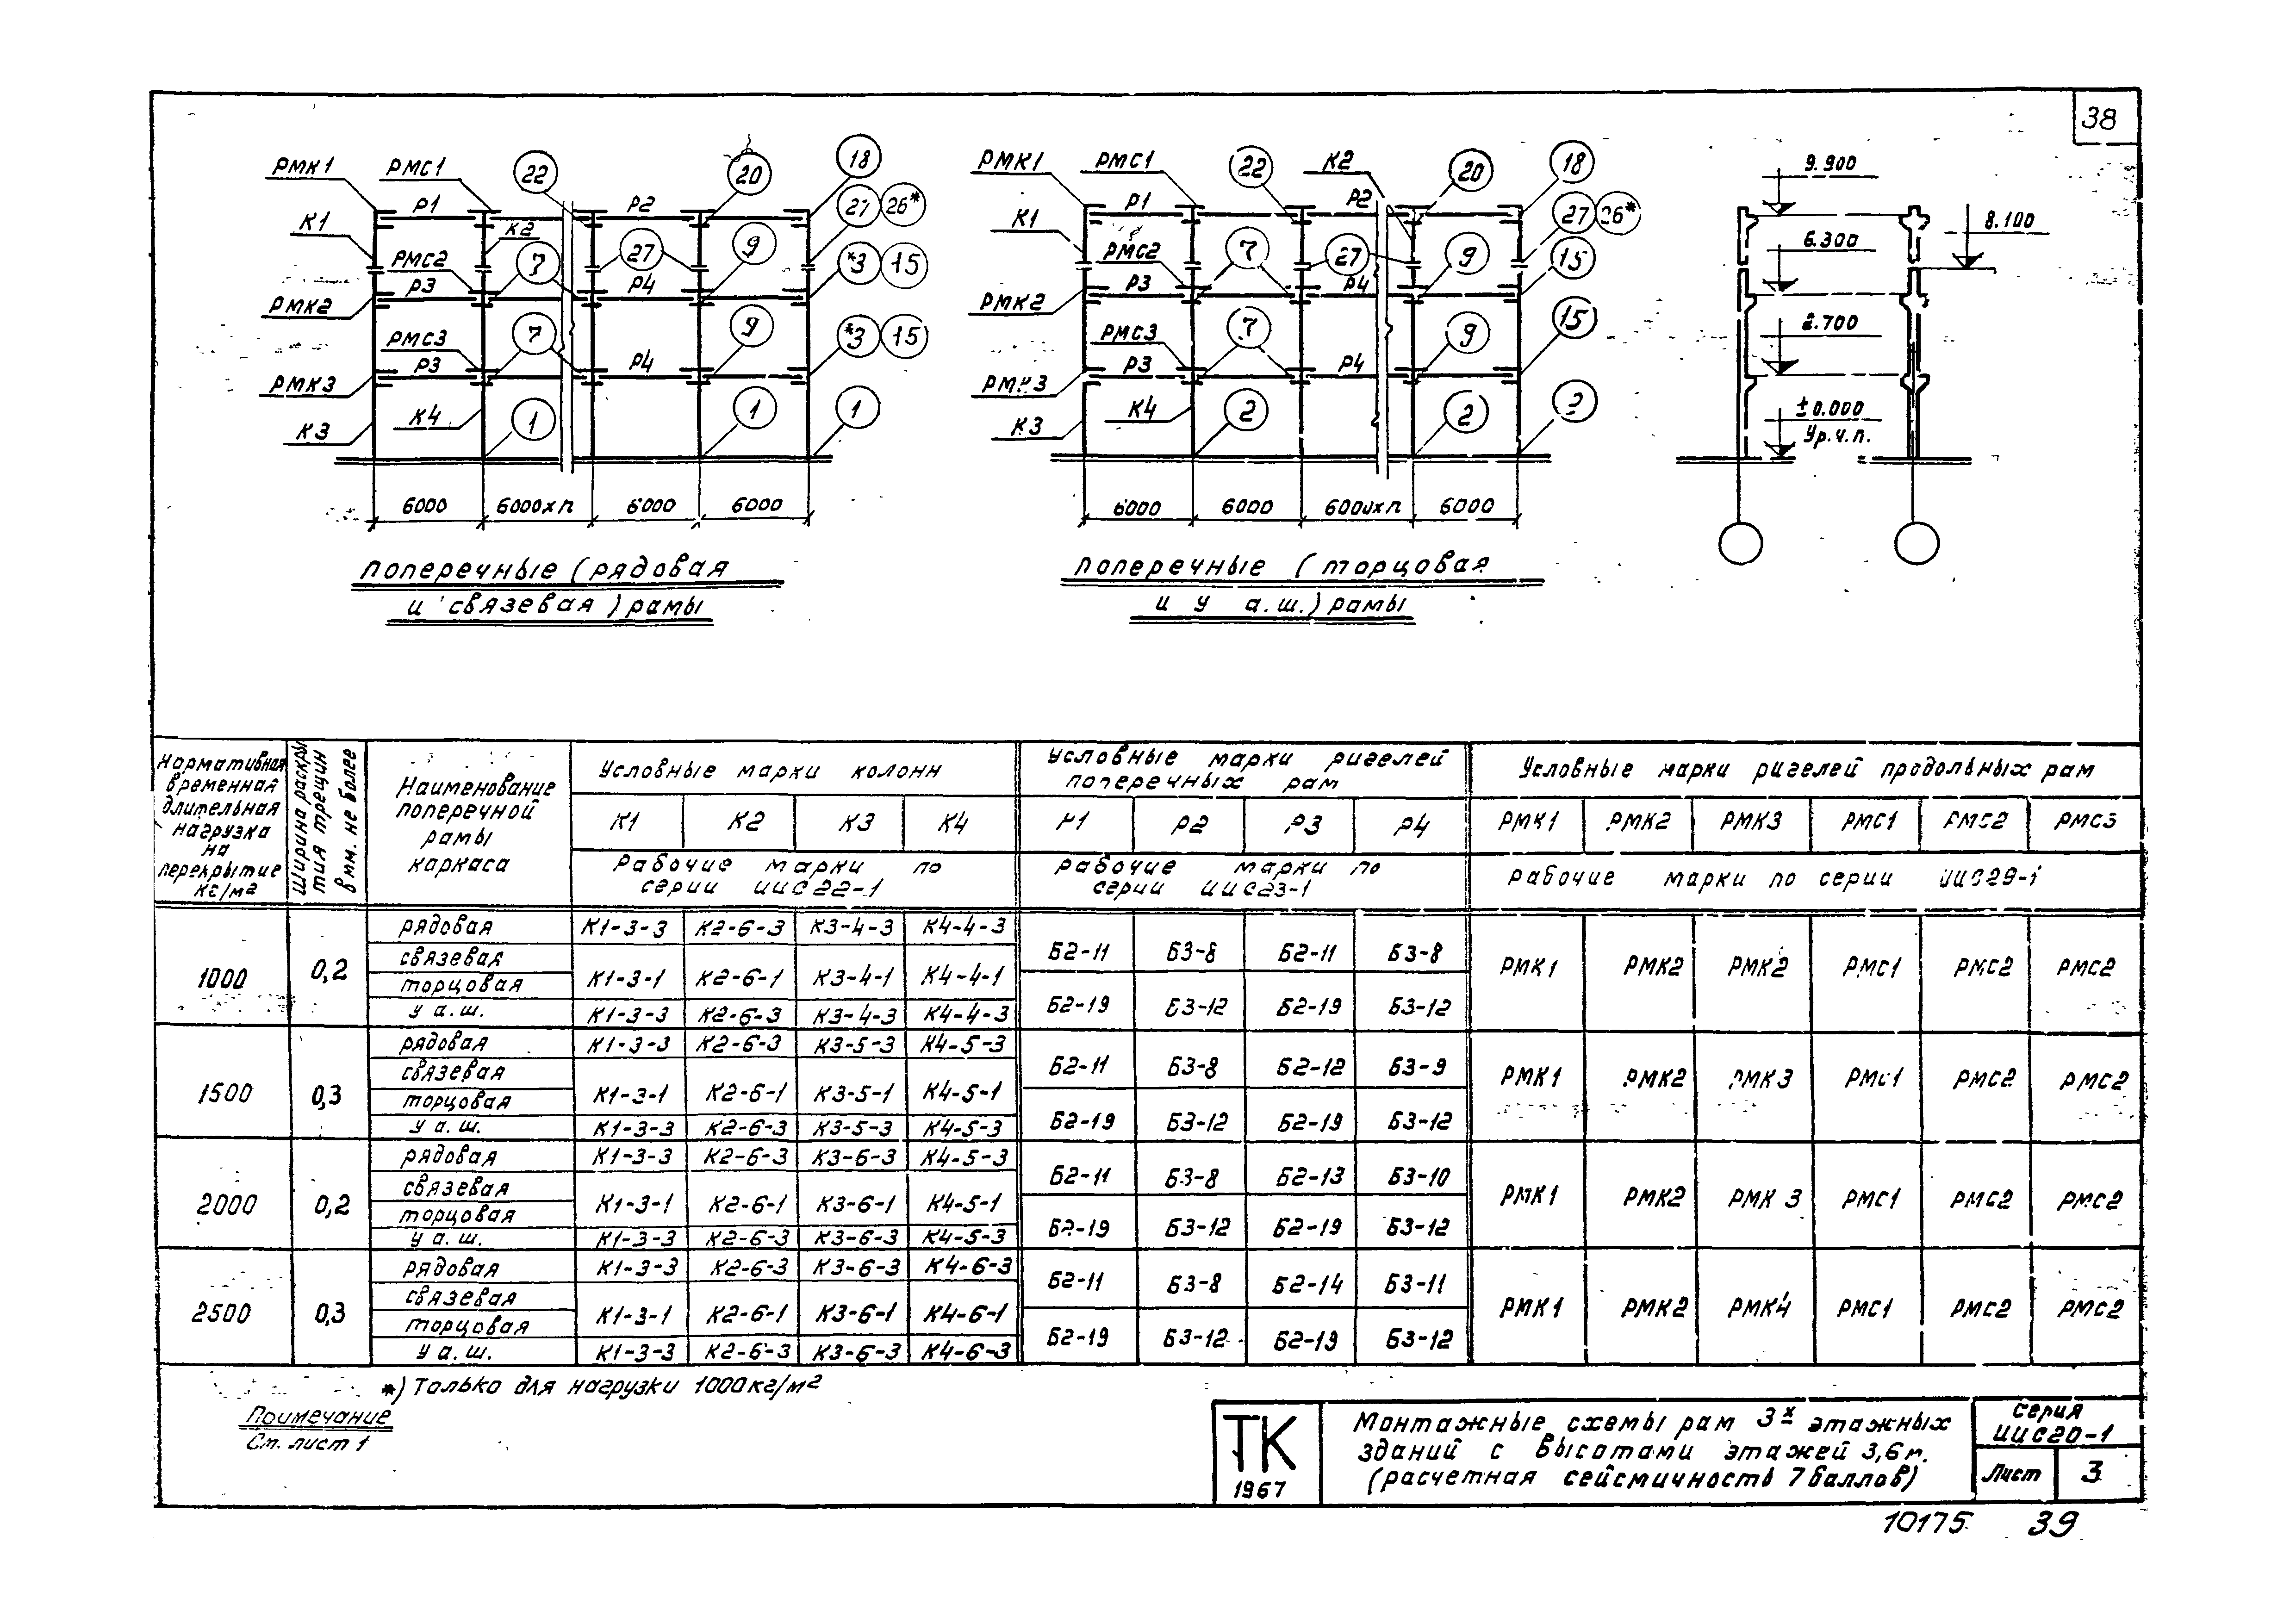 38
РМК1 РМС1 22 20 18
Р1 Р2 27 26*
К1 К2 7 27 9
РМС2 *3 15
Р3 Р4
РМК2
РМС3 7 9 *3 15
Р3 Р4
РМК3
К4 1 1 1
К3
6000 6000хп 6000 6000
поперечные (рядовая
и связевая) рамы
РМК1 РМС1 22 К2 20 18
Р1 Р2 27 26*
К1
РМС2 7 27 9 15
Р3 Р4
РМК2
РМС3 7 9 15
Р3 Р4
РМК3
К4 2 2 2
К3
6000 6000 6000хп 6000
поперечные (торцовая
и у а.ш.) рамы
9.900
8.100
6.300
2.700
±0.000
Ур.ч.п.
Нормативная временная длительная нагрузка на перекрытие кг/м2
Ширина раскрытия трещин в мм. не более
Наименование поперечной рамы каркаса
Условные марки колонн
Условные марки ригелей поперечных рам
Условные марки ригелей продольных рам
К1 К2 К3 К4 Р1 Р2 Р3 Р4 РМК1 РМК2 РМК3 РМС1 РМС2 РМС3
Рабочие марки по серии ИИС22-1
Рабочие марки по серии ИИС23-1
Рабочие марки по серии ИИС29-1
1000 0,2
рядовая К1-3-3 К2-6-3 К3-4-3 К4-4-3
связевая
Б2-11 Б3-8 Б2-11 Б3-8
РМК1 РМК2 РМК2 РМС1 РМС2 РМС2
К1-3-1 К2-6-1 К3-4-1 К4-4-1
торцовая
Б2-19 Б3-12 Б2-19 Б3-12
у а.ш. К1-3-3 К2-6-3 К3-4-3 К4-4-3
1500 0,3
рядовая К1-3-3 К2-6-3 К3-5-3 К4-5-3
связевая
Б2-11 Б3-8 Б2-12 Б3-9
РМК1 РМК2 РМК3 РМС1 РМС2 РМС2
К1-3-1 К2-6-1 К3-5-1 К4-5-1
торцовая
Б2-19 Б3-12 Б2-19 Б3-12
у а.ш. К1-3-3 К2-6-3 К3-5-3 К4-5-3
2000 0,2
рядовая К1-3-3 К2-6-3 К3-6-3 К4-5-3
связевая
Б2-11 Б3-8 Б2-13 Б3-10
РМК1 РМК2 РМК 3 РМС1 РМС2 РМС2
К1-3-1 К2-6-1 К3-6-1 К4-5-1
торцовая
Б2-19 Б3-12 Б2-19 Б3-12
у а.ш. К1-3-3 К2-6-3 К3-6-3 К4-5-3
2500 0,3
рядовая К1-3-3 К2-6-3 К3-6-3 К4-6-3
связевая
Б2-11 Б3-8 Б2-14 Б3-11
РМК1 РМК2 РМК4 РМС1 РМС2 РМС2
К1-3-1 К2-6-1 К3-6-1 К4-6-1
торцовая
Б2-19 Б3-12 Б2-19 Б3-12
у а.ш. К1-3-3 К2-6-3 К3-6-3 К4-6-3
*) Только для нагрузки 1000кг/м2
Примечание
См. лист 1
ТК
1967
Монтажные схемы рам 3х этажных
зданий с высотами этажей 3,6м.
(расчетная сейсмичность 7 баллов)
серия
ИИС20-1
Лист 3
10175 39